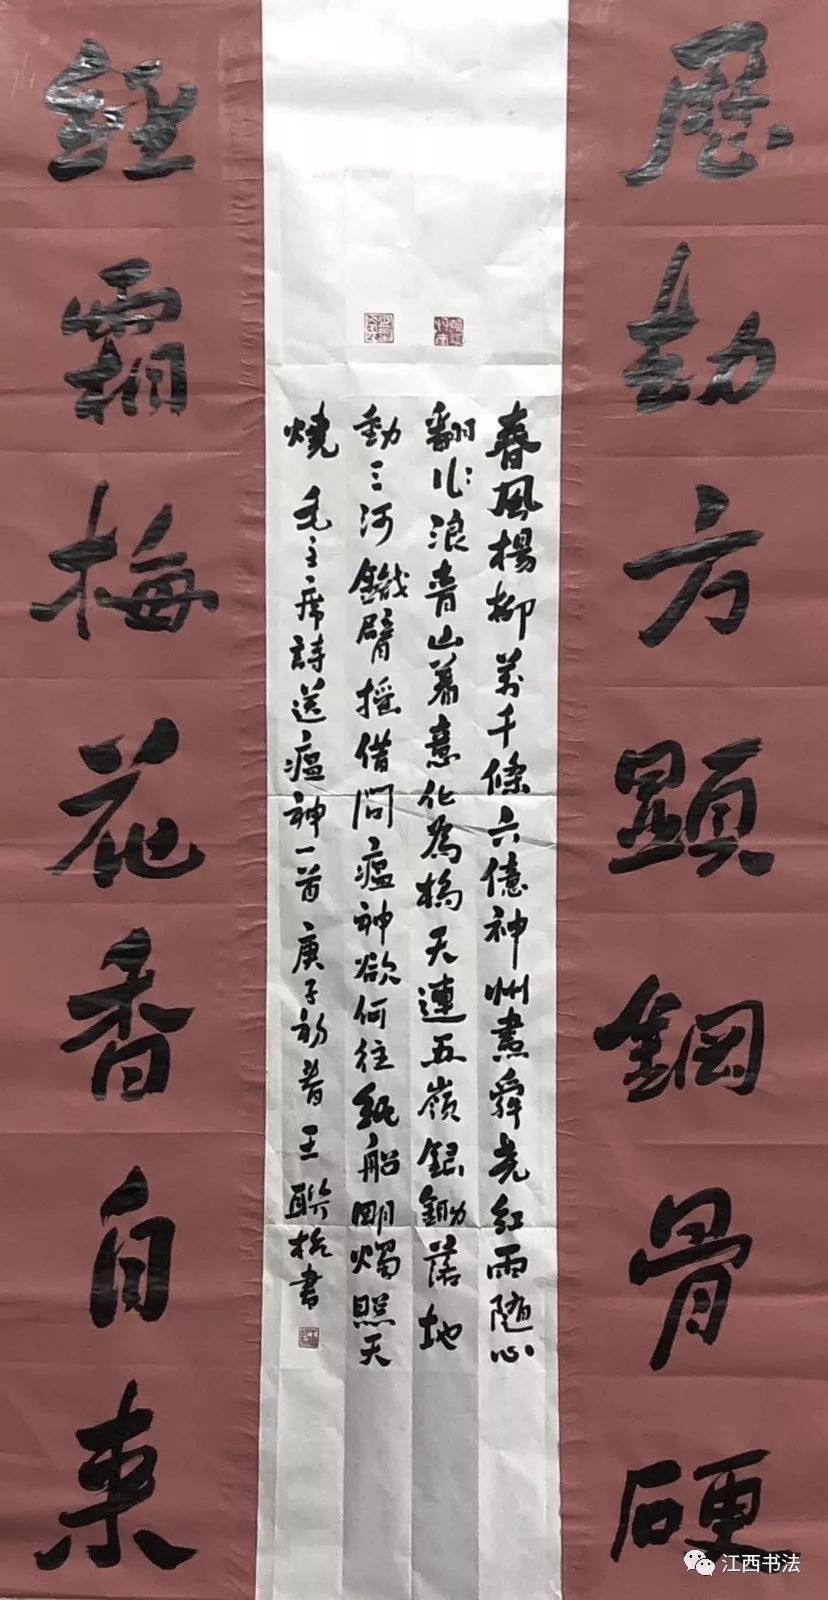 歷劫方顯鋼骨硬
春風楊柳萬千條六億神州盡舜堯紅雨隨心
翻作浪青山著意化為橋天連五嶺銀鋤落地
動三河鐵臂搖借問瘟神欲何往紙船明燭照天
燒 毛主席詩送瘟神一首 庚子初春 王聯松書
經霜梅花香自來
江西书法